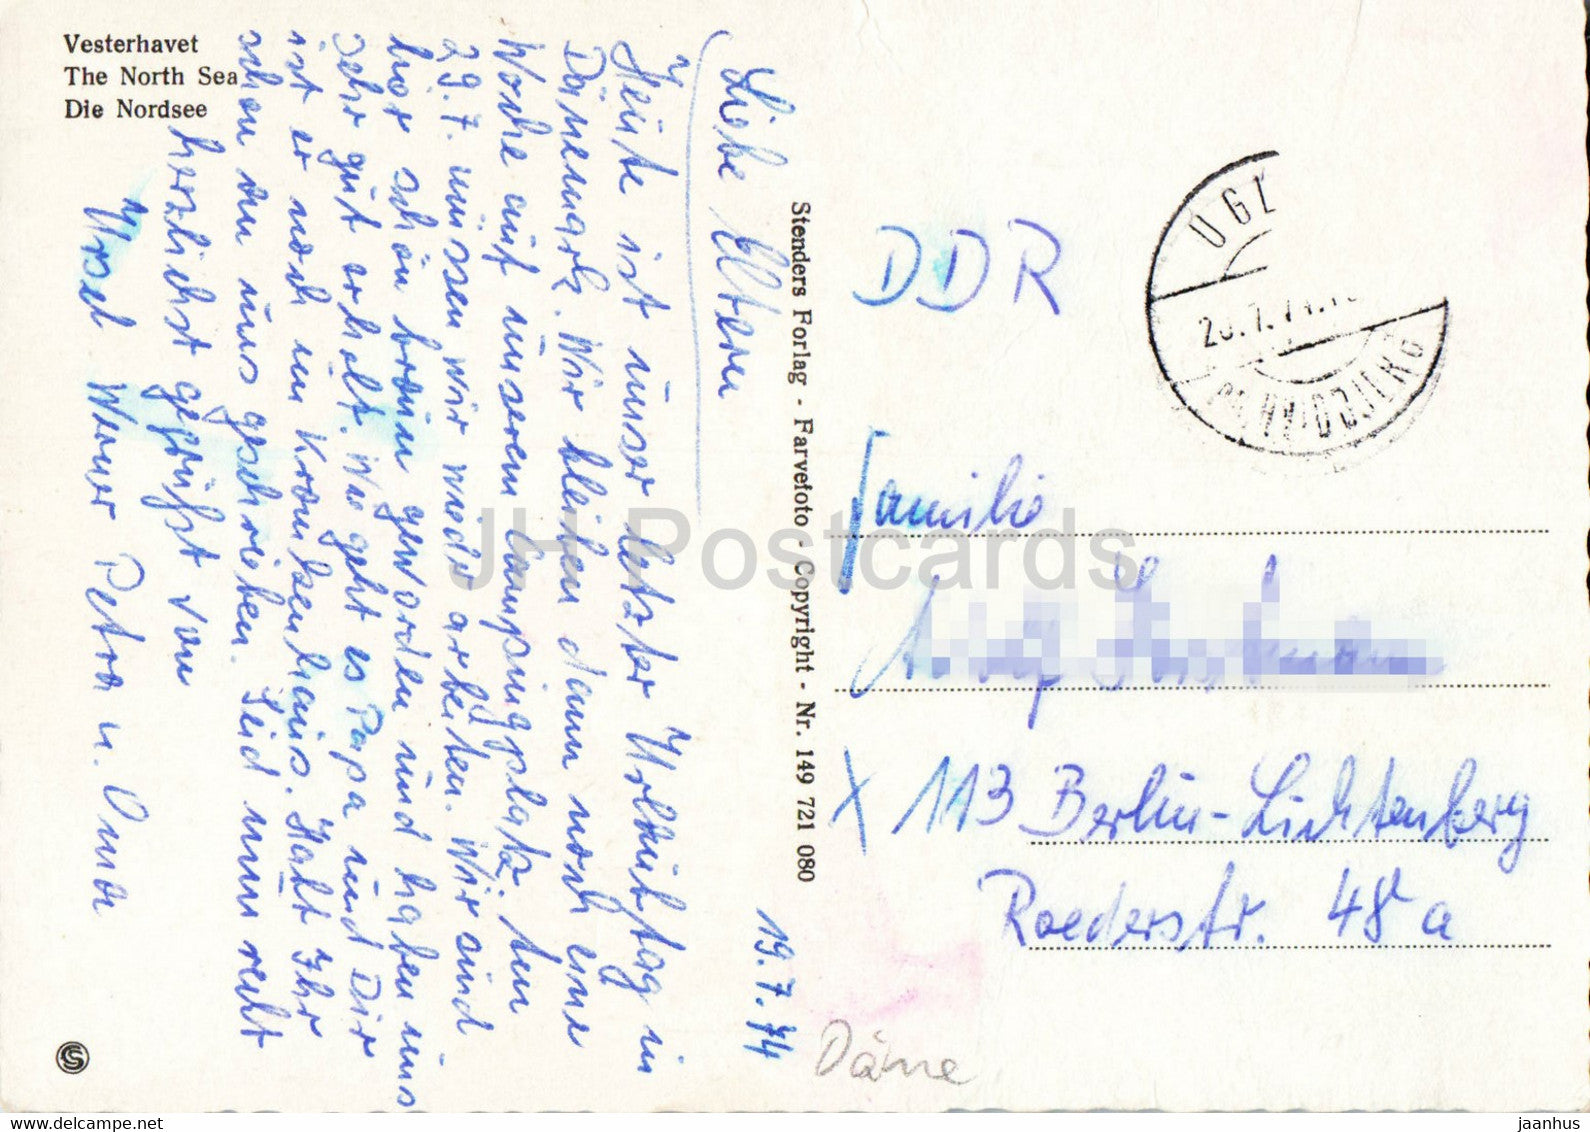 Vesterhavet
The North Sea
Die Nordsee
19.7.74
Liebe Eltern
Heute ist unser letzter Urlaubstag in
Dänemark. Wir bleiben dann noch eine
Woche auf unserem Campingplatz. Am
29.7. müssen wir wieder arbeiten. Wir sind
hier schön braun geworden und haben uns
sehr gut erholt. Wie geht es Papa und Dir
ist er noch im Krankenhaus. Habt Ihr
schon an uns geschrieben. Seid nun recht
herzlichst gegrüßt von
Ursel Werner Petra u. Oma
Stenders Forlag - Farvefoto - Copyright - Nr. 149 721 080
DDR
Familie
113 Berlin-Lichtenberg
Roederstr. 48 a
Däne
JH Postcards
delcampe.net
jaanhus